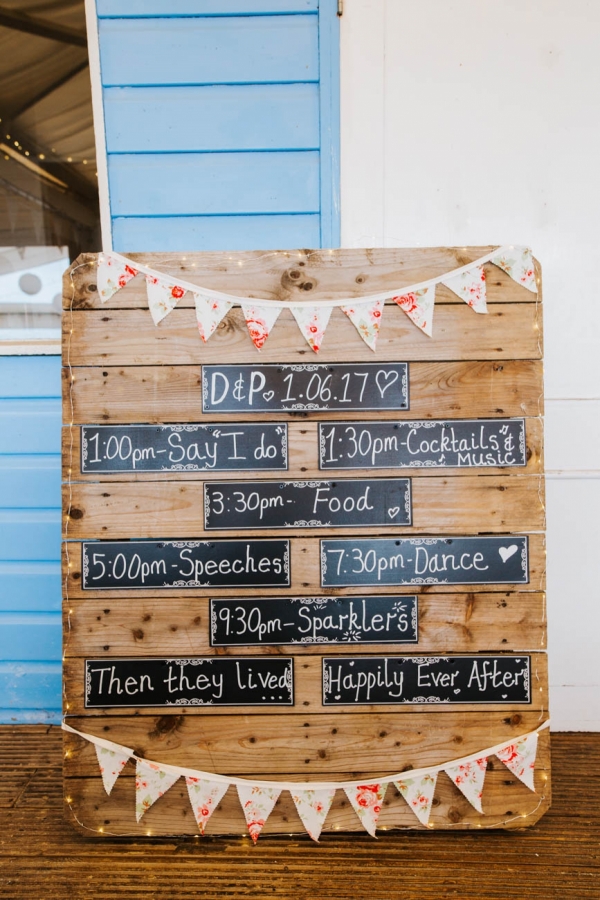 D&P 1.06.17
1:00pm-Say "I do"
1:30pm-Cocktails &
Music
3:30pm- Food
5:00pm-Speeches
7:30pm-Dance
9:30pm-Sparklers
Then they lived...
Happily Ever After